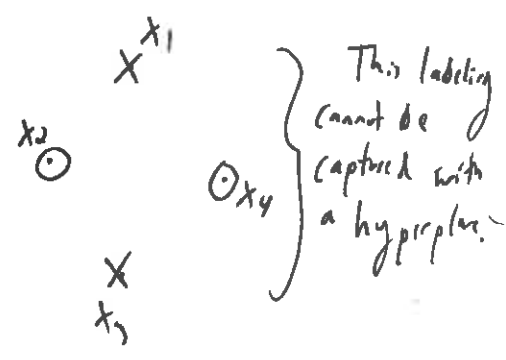 X1
X2
X4
X3
This labeling
cannot be
captured with
a hyperplane.